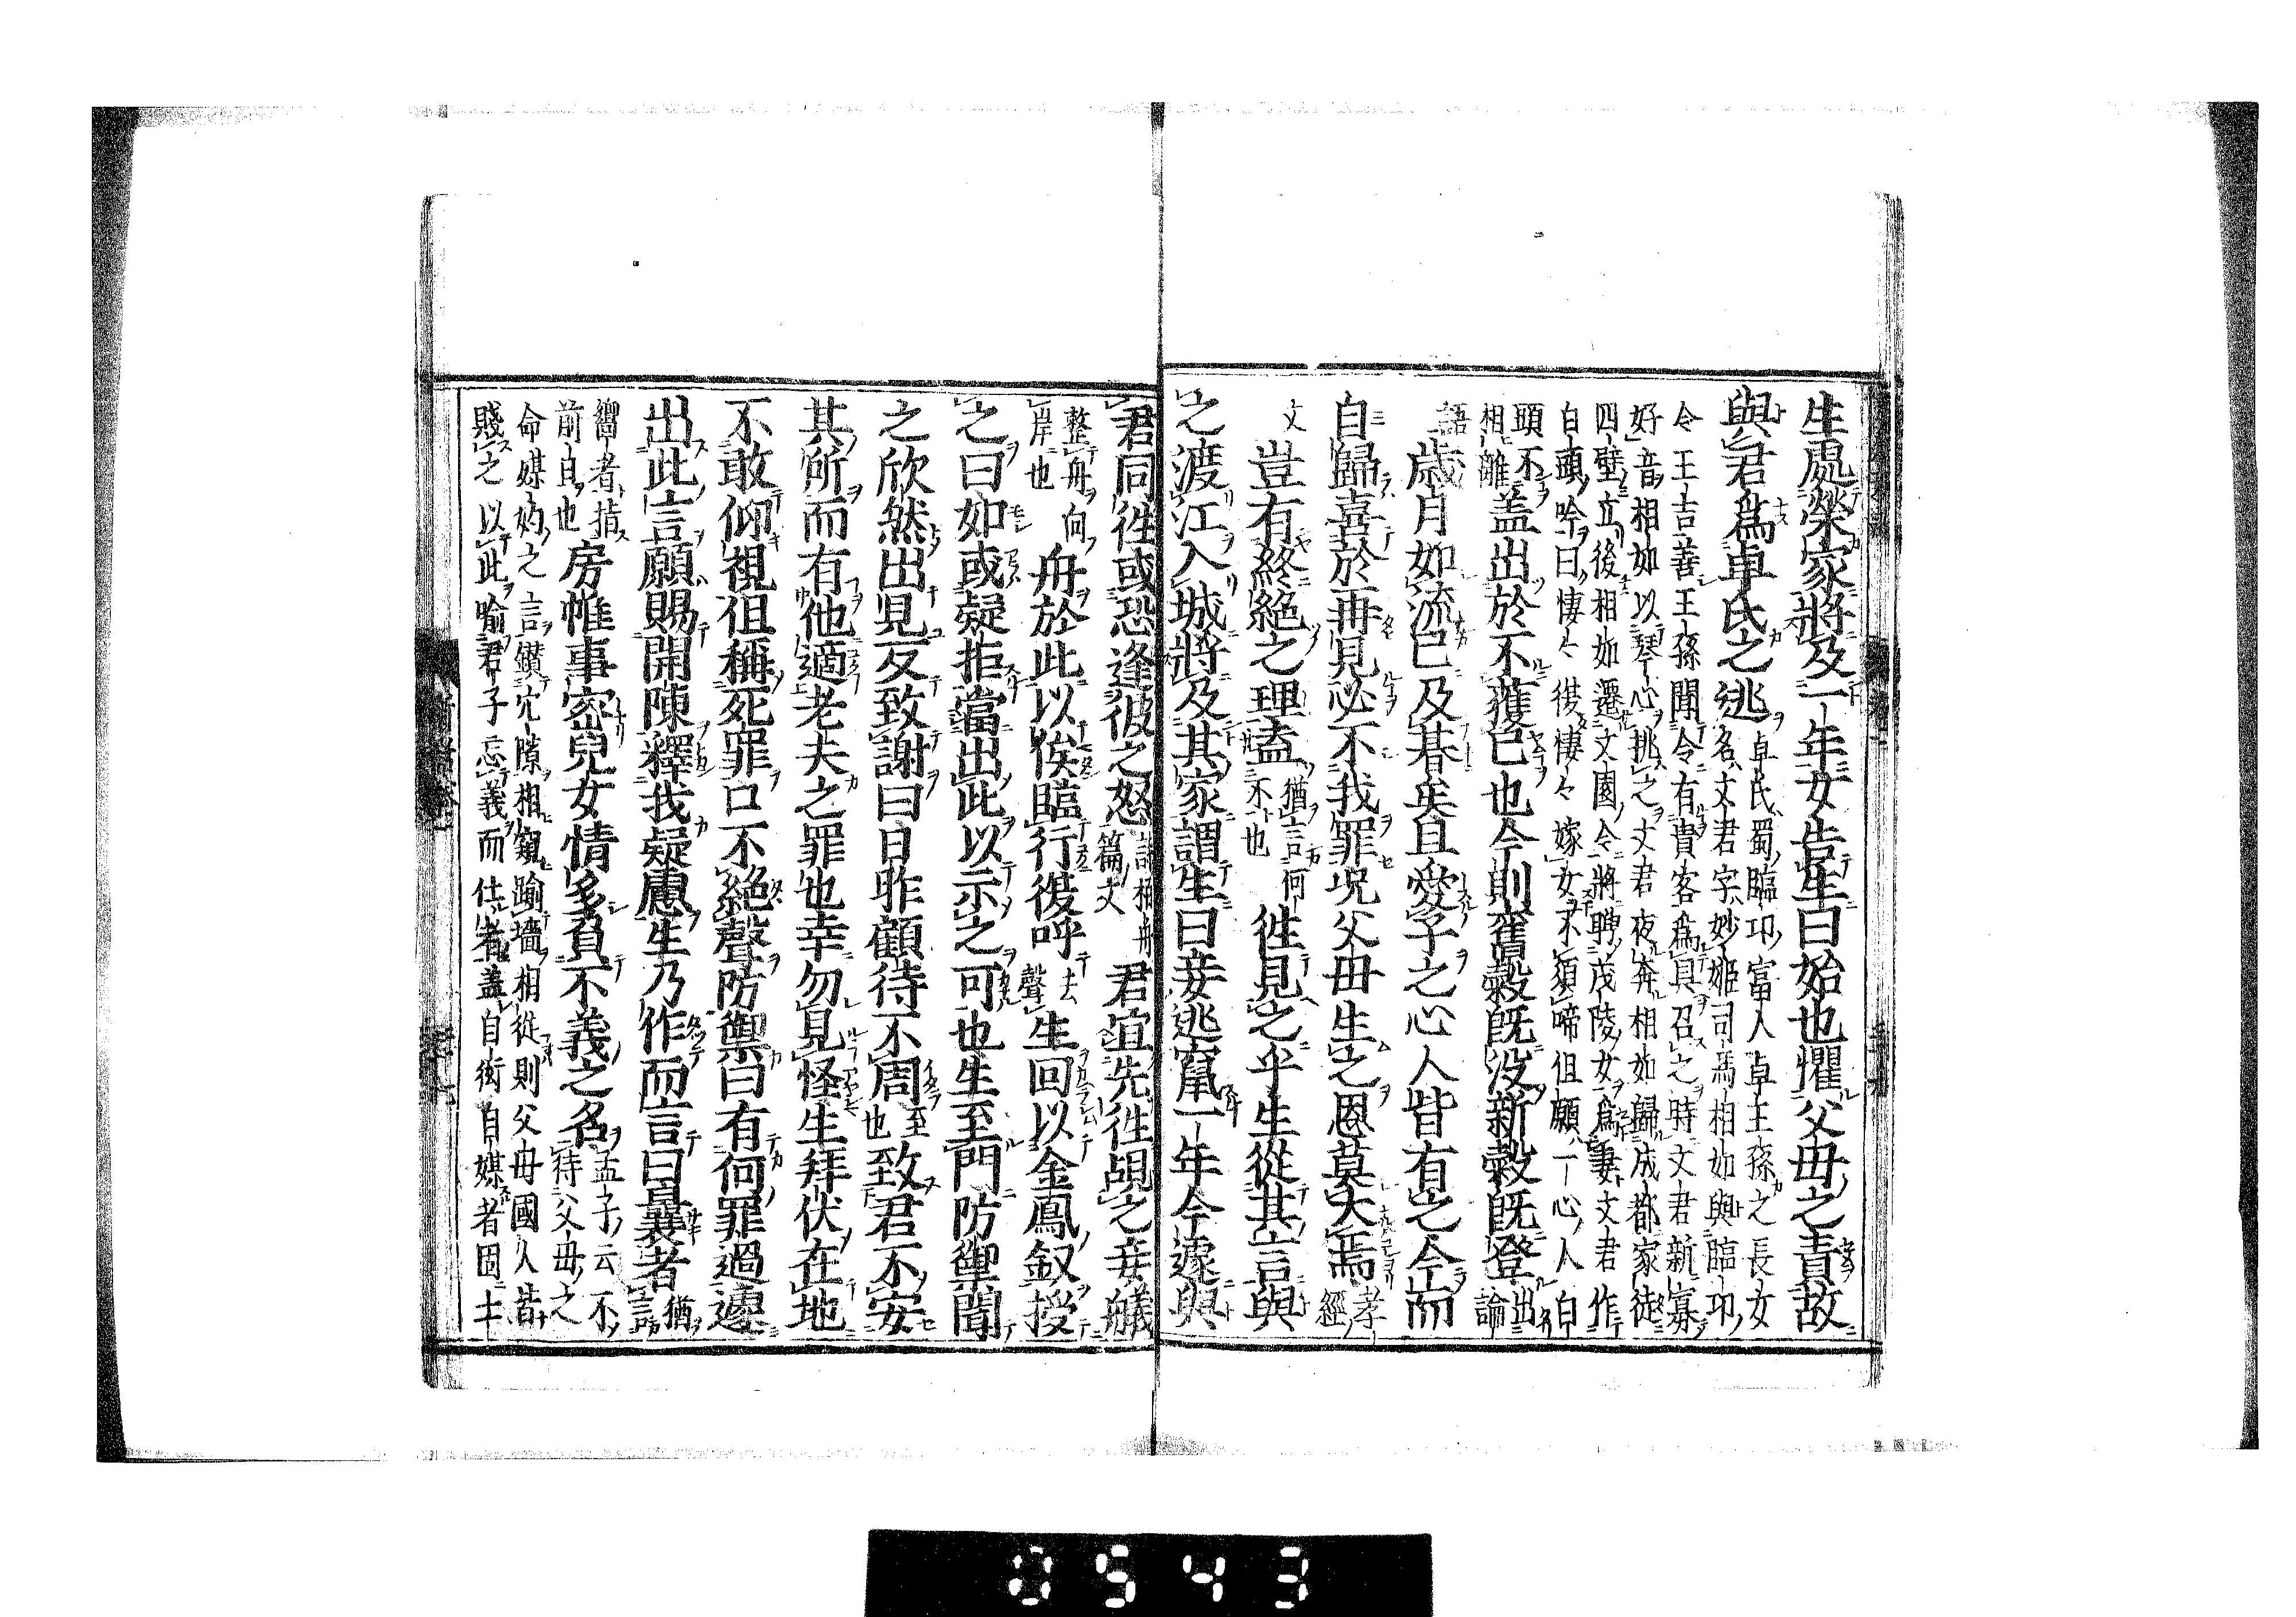 生處榮家將及一年女告生曰始也懼父母之責故
與君爲卓氏之逃
卓氏蜀臨卭富人卓王孫之長女
名文君字妙姬司馬相如與臨卭
令王吉善王孫聞令有貴客爲具召之時文君新寡
好音相如以琴心挑之文君夜奔相如歸成都家徒
四壁立後相如遷文園令將聘茂陵女爲妻文君作
白頭吟曰悽々復悽々嫁女不須啼但願一心人白
頭不
相離
蓋出於不獲已也今則舊穀既没新穀既登
出
論
語
歲月如流已及朞矣且愛子之心人皆有之今而
自歸喜於再見必不我罪况父母生之恩莫大焉
孝
經
文
豈有終絶之理盍
猶言何
不也
徃見之乎生從其言與
之渡江入城將及其家謂生曰妾逃竄一年今遽與
君同徃或恐逢彼之怒
詩柏舟
篇文
君宜先徃覘之妾艤
整舟向
岸也
舟於此以俟臨行復呼
去
聲
生回以金鳳釵授
之曰如或疑拒當出此以示之可也生至門防禦聞
之欣然出見反致謝曰日昨顧待不周
至
也
致君不安
其所而有他適老夫之罪也幸勿見怪生拜伏在地
不敢仰視但稱死罪口不絶聲防禦曰有何罪過遽
出此言願賜開陳釋我疑慮生乃作而言曰曩者
猶
言
嚮者指
前日也
房帷事密兒女情多負不義之名
孟子云不
待父母之
命媒妁之言鑚穴隙相窺踰墻相從則父母國人皆
賤之以此喻君子忘義而仕者蓋自衒自媒者固士
0543